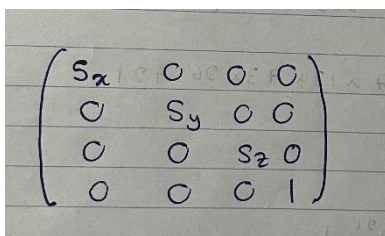 Sx 0 0 0
0 Sy 0 0
0 0 Sz 0
0 0 0 1